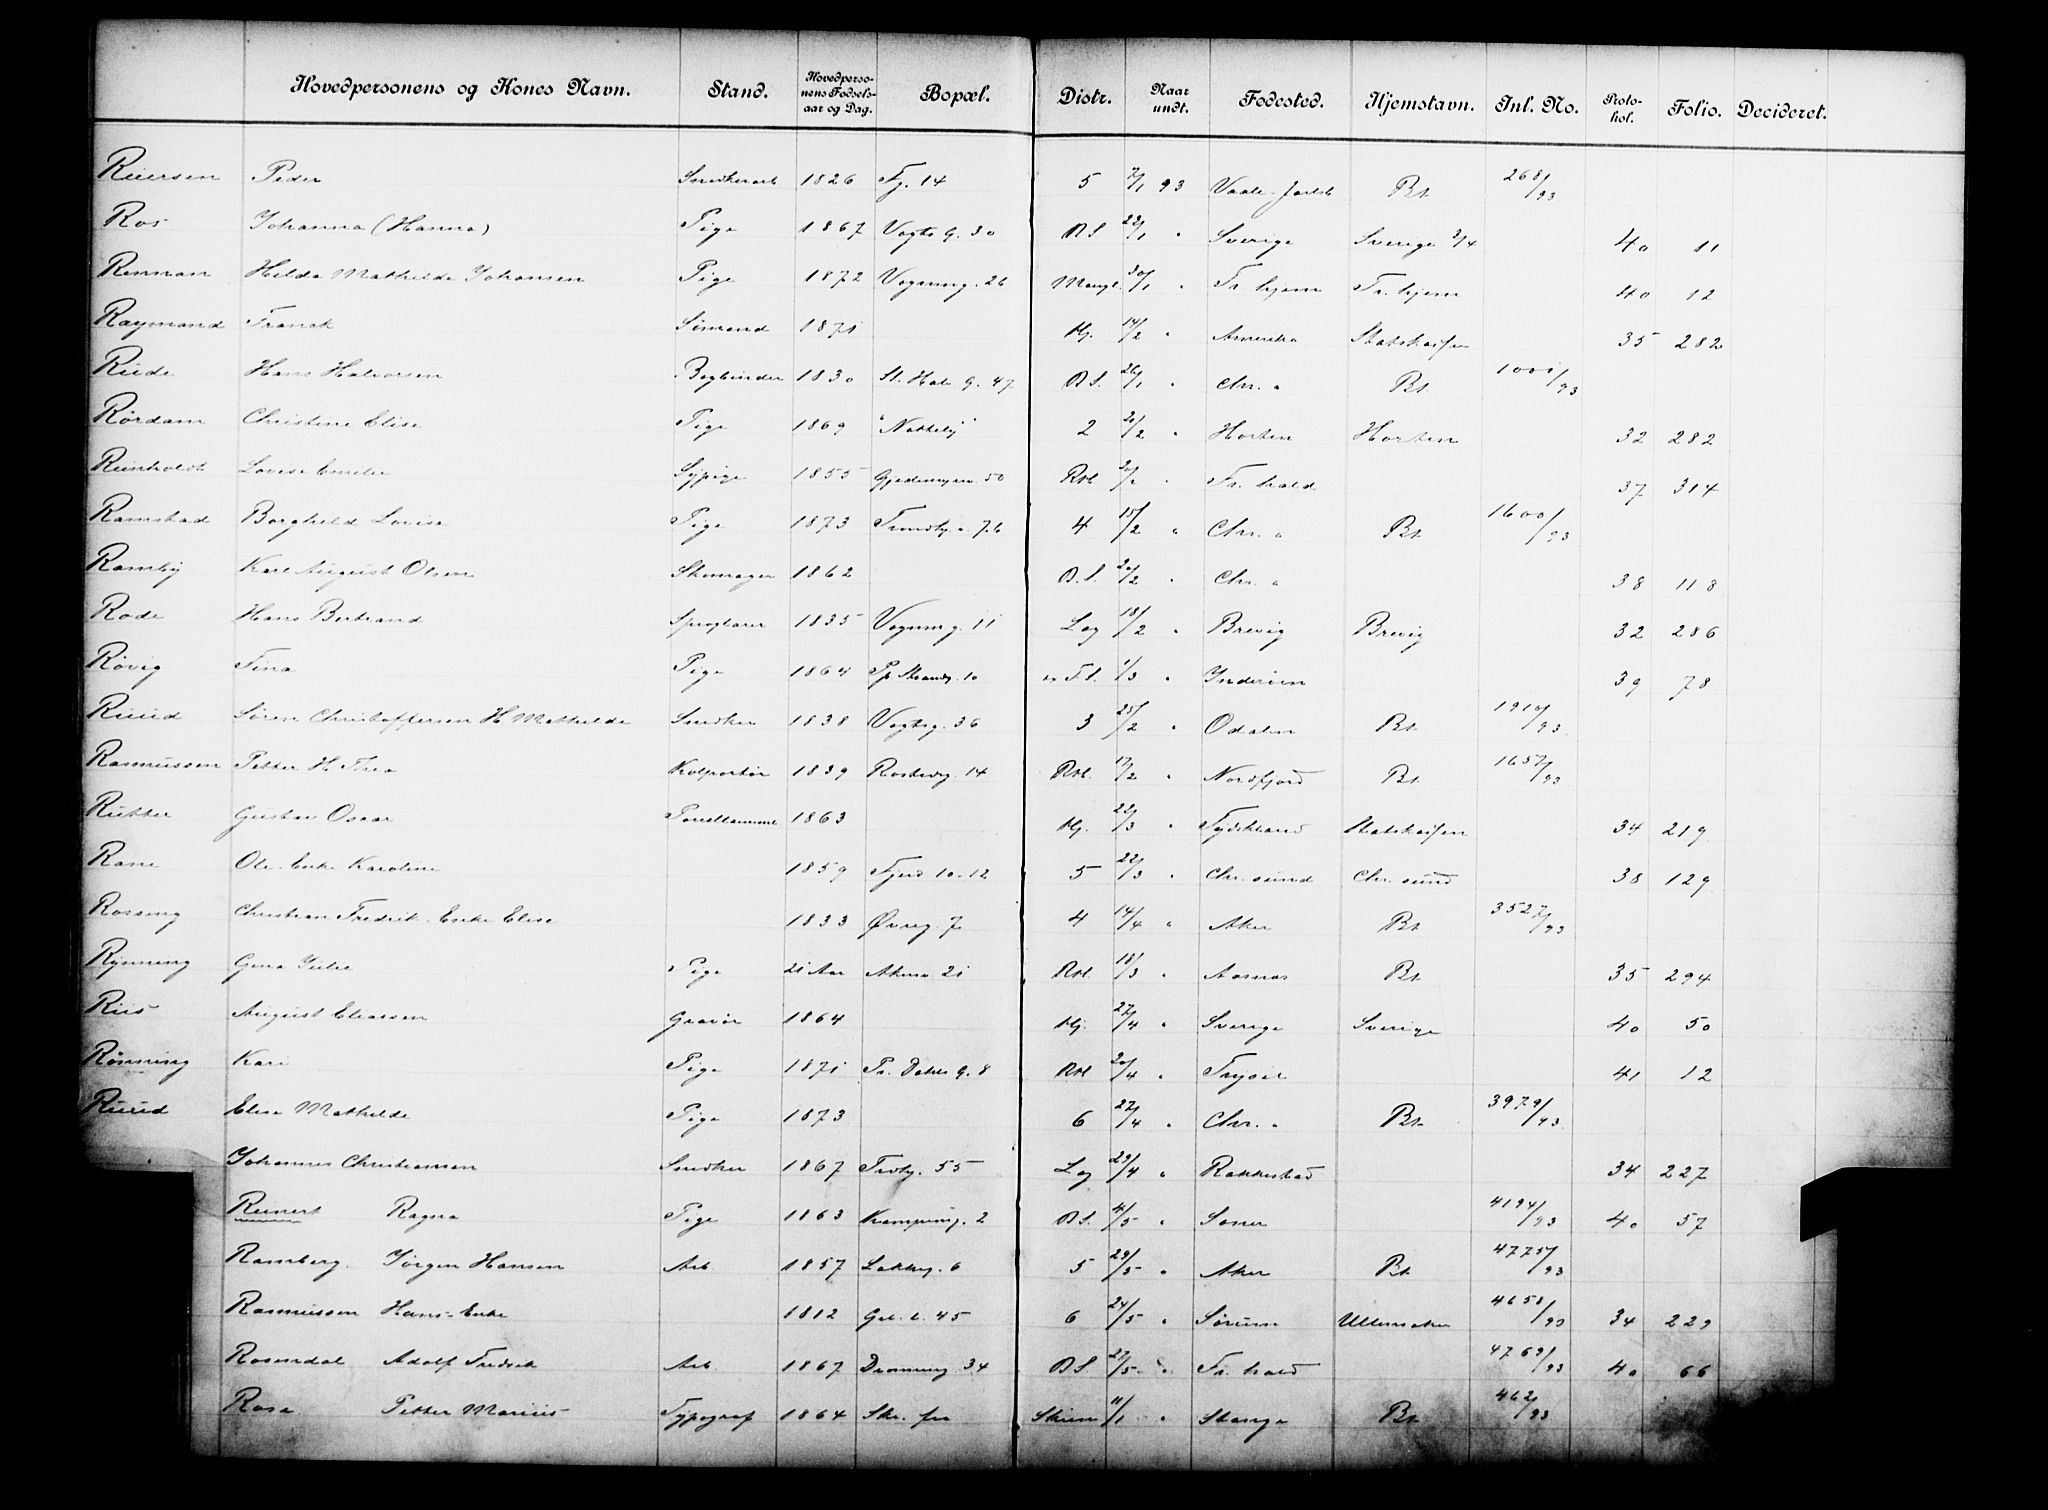 Hovedpersonens og Kones Navn. Stand. Hovedpersonens Fødselsaar og Dag. Bopæl. Distr. Naar undt. Fødested. Hjemstavn. Inl. No. Protokol. Folio. Decideret.
Reiersen Peder Snedkerarb 1826 Fj. 14 5 7/1 93 Vaale Jarlsb Bt 268/93
Ros Johanna (Hanna) Pige 1867 Vogts g. 30 B.S. 22/1 " Sverige Sverige 2/4 40 11
Renman Hilda Mathilde Johansen Pige 1872 Vognmg. 26 Mangl. 30/1 " Fr. hjem Fr. hjem 40 12
Raymond Franck Sömand 1871 Hj. 14/2 " Amerika Statskassen 35 282
Rude Hans Halvorsen Bogbinder 1830 St. Hal. g. 47 B.S. 26/1 " Chr. a Bt 1001/93
Rørdam Christine Elise Pige 1869 "Nøkleby" 2 2/2 " Horten Horten 32 282
Reinholdt Lovise Emilie Sypige 1855 Gjedemyrsv. 50 Rtl. 20/2 " Fr. hald 37 314
Ramstad Borghild Lovise Pige 1873 Trondhj. v. 76 4 15/2 " Chr. a Bt 1600/93
Ramby Karl August Olsen Skomager 1862 B.S. 20/2 " Chr. a 38 118
Rode Hans Bertrand Sproglærer 1835 Vognmg. 11 Log 18/2 " Brevig Brevig 32 286
Røvig Fina Pige 1864 Pp. Strandg. 10 F.S. 1/3 " Inderøen 39 78
Ruud Sören Christoffersen H. Mathilde Snedker 1838 Vogtsg. 36 3 25/2 " Odalen Bt 1910/93
Rasmussen Petter H. Thea Kolportör 1839 Rostedg. 14 Rtl. 17/2 " Nordfjord Bt 1657/93
Rutter Gustav Oscar 1863 Hj. 22/3 " Tydskland Statskassen 34 219
Rane Ole. Enke Karoline 1859 Fjerd 10-12 5 22/3 " Chr. sund Chr. sund 38 129
Rossing Christian Fredrik. Enke Elise 1833 Øvreg. 7 4 14/4 " Aker Bt 3527/93
Rynning Gina Julie Pige 21 Aar Akersv. 21 Rtl. 18/3 " Aasnæs Bt 35 294
Riis August Eliassen Gravör 1864 Hj. 27/4 " Sverige Sverige 40 50
Rönning Kari Pige 1871 Pr. Dahls g. 8 Rtl 20/4 " Trysil 41 12
Ruud Elise Mathilde Pige 1873 6 27/4 " Chr. a Bt 3979/93
Johannes Christiansen Snedker 1867 Trohj. 55 Log 29/4 " Rakkestad 34 227
Reinert Ragna Pige 1863 Kampeng. 2 B.S. 4/5 " Soner 4194/93 40 57
Ramberg. Jörgen Hansen Arb. 1857 Lakkeg. 6 5 29/5 " Aker Bt 4775/93
Rasmussen Hans - Enke 1812 Grl. l. 45 6 24/5 " Sörum Ullensaker 4658/93 34 229
Rosendal Adolf Fredrik Arb. 1867 Dronning. 34 B.S. 27/5 " Fr. hald 4769/93 40 66
Rosa Petter Marius Typograf 1864 Skien 11/1 " Stange Bt 462/93